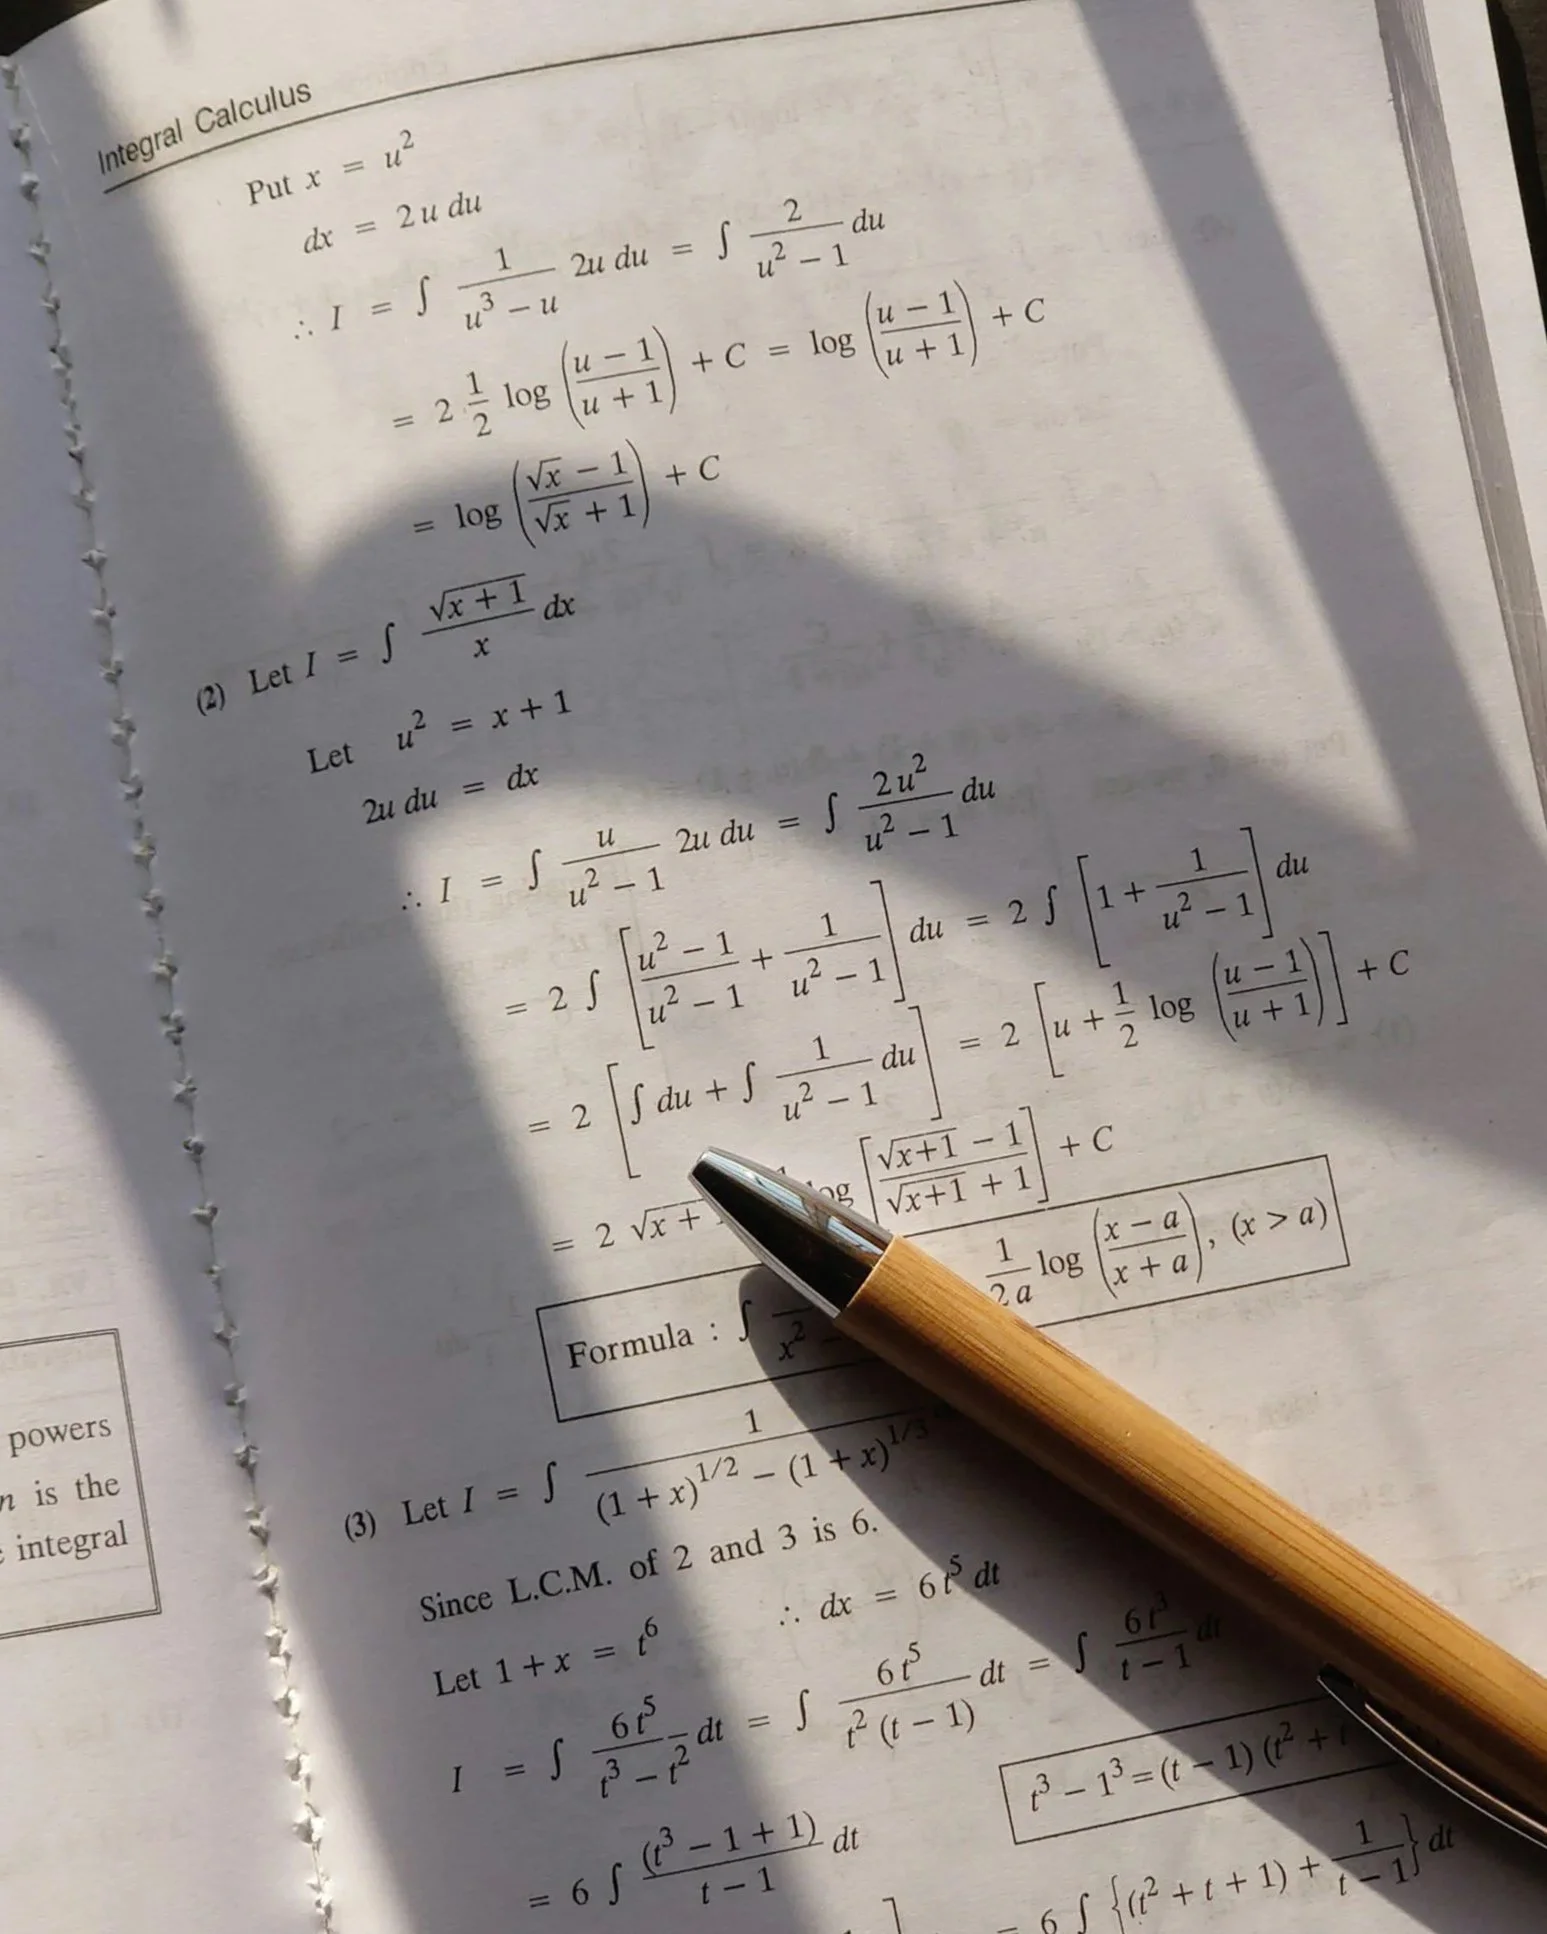 Integral Calculus
Put x = u²
dx = 2u du
∴ I = ∫ 1/(u³ − u) 2u du = ∫ 2/(u² − 1) du
= 2·1/2 log ((u − 1)/(u + 1)) + C = log ((u − 1)/(u + 1)) + C
= log ((√x − 1)/(√x + 1)) + C
(2) Let I = ∫ √(x + 1)/x dx
Let u² = x + 1
2u du = dx
∴ I = ∫ u/(u² − 1) 2u du = ∫ 2u²/(u² − 1) du
= 2 ∫ [(u² − 1)/(u² − 1) + 1/(u² − 1)] du = 2 ∫ [1 + 1/(u² − 1)] du
= 2 [∫ du + ∫ 1/(u² − 1) du] = 2 [u + 1/2 log ((u − 1)/(u + 1))] + C
= 2 √x + log [(√(x+1) − 1)/(√(x+1) + 1)] + C
Formula : ∫ x² − 1/2a log ((x − a)/(x + a)), (x > a)
(3) Let I = ∫ 1/((1 + x)^1/2 − (1 + x)^1/3)
Since L.C.M. of 2 and 3 is 6.
Let 1 + x = t⁶ ∴ dx = 6t⁵ dt
I = ∫ 6t⁵/(t³ − t²) dt = ∫ 6t⁵/(t² (t − 1)) dt = ∫ 6t³/(t − 1) dt
t³ − 1³ = (t − 1) (t² + t
= 6 ∫ (t³ − 1 + 1)/(t − 1) dt
= 6 ∫ {(t² + t + 1) + 1/(t − 1)} dt
powers
n is the
integral